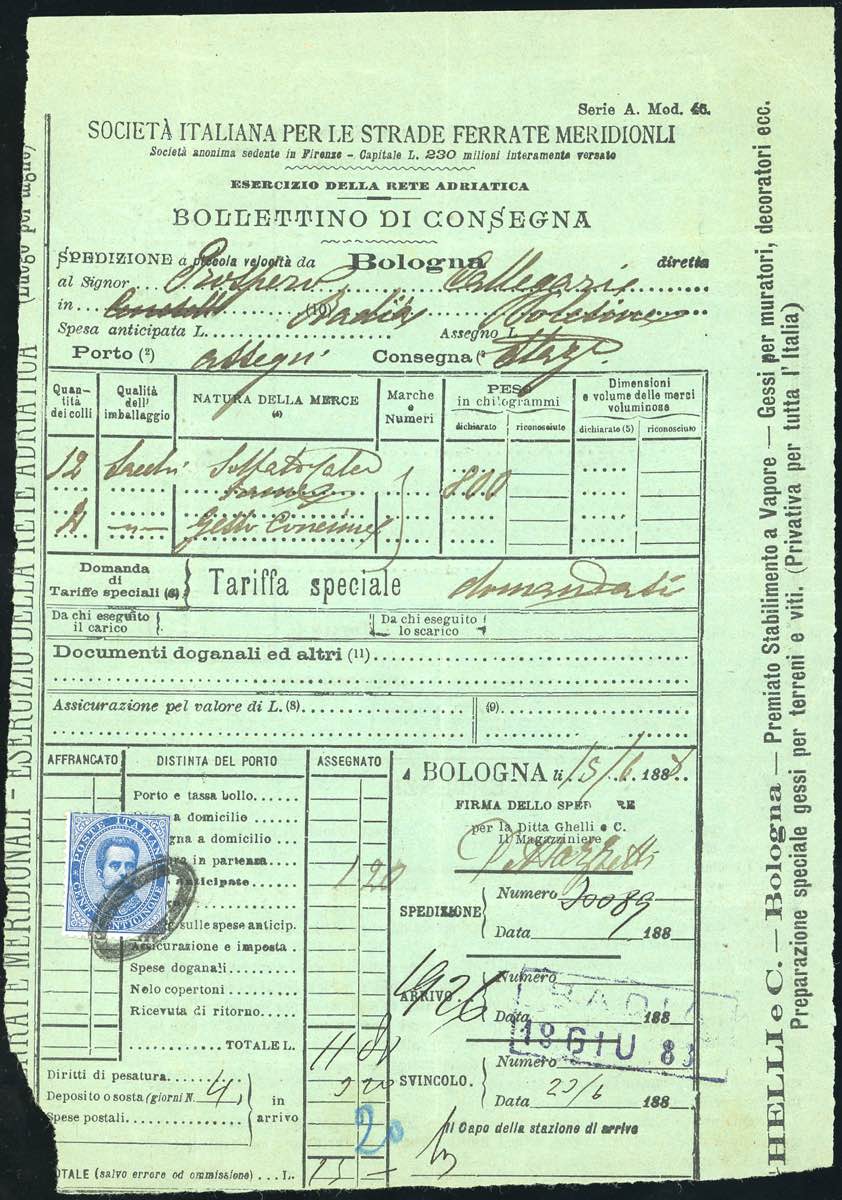 Serie A. Mod. 46.
SOCIETÀ ITALIANA PER LE STRADE FERRATE MERIDIONLI
Società anonima sedente in Firenze - Capitale L. 230 milioni interamente versato
ESERCIZIO DELLA RETE ADRIATICA
BOLLETTINO DI CONSEGNA
SPEDIZIONE a piccola velocità da Bologna diretta
al Signor Prospero Callegari
in (10) Badia Polesine
Spesa anticipata L. Assegno L.
Porto (2) assegn Consegna (
Quan- tità dei colli
Qualità dell' imballaggio
NATURA DELLA MERCE (4)
Marche e Numeri
PESO in chilogrammi
dichiarato riconosciuto
Dimensioni e volume delle merci voluminose
dichiarato (5) riconosciuto
12 Sacchi Solfato 800
2 -"- Gesso
Domanda di Tariffe speciali (6) Tariffa speciale domandasi
Da chi eseguito il carico
Da chi eseguito lo scarico
Documenti doganali ed altri (11)
Assicurazione pel valore di L. (8) (9)
AFFRANCATO DISTINTA DEL PORTO ASSEGNATO
Porto e tassa bollo
a domicilio
gna a domicilio
ra in partenza
anticipate 1 20
sulle spese anticip.
Assicurazione e imposta
Spese doganali
Nolo copertoni
Ricevuta di ritorno
TOTALE L. 11 80
Diritti di pesatura
Deposito o sosta (giorni N. 4) 3 20
Spese postali
in arrivo
20
OTALE (salvo errore od ommissione) L. 15 -
POSTE ITALIANE
CENT. VENTICINQUE
A BOLOGNA li 15/6 188
FIRMA DELLO SPE RE
per la Ditta Ghelli e C.
Il Magazziniere
SPEDIZIONE Numero 20089
Data 188
ARRIVO. Numero 1926
Data 188
BADIA
18 GIU 88
SVINCOLO. Numero
Data 23/6 188
Il Capo della stazione di arrivo
(Luogo per taglio)
RRATE MERIDIONALI - ESERCIZIO DELLA RETE ADRIATICA
HELLI e C. - Bologna - Premiato Stabilimento a Vapore - Gessi per muratori, decoratori ecc.
Preparazione speciale gessi per terreni e viti. (Privativa per tutta l'Italia)